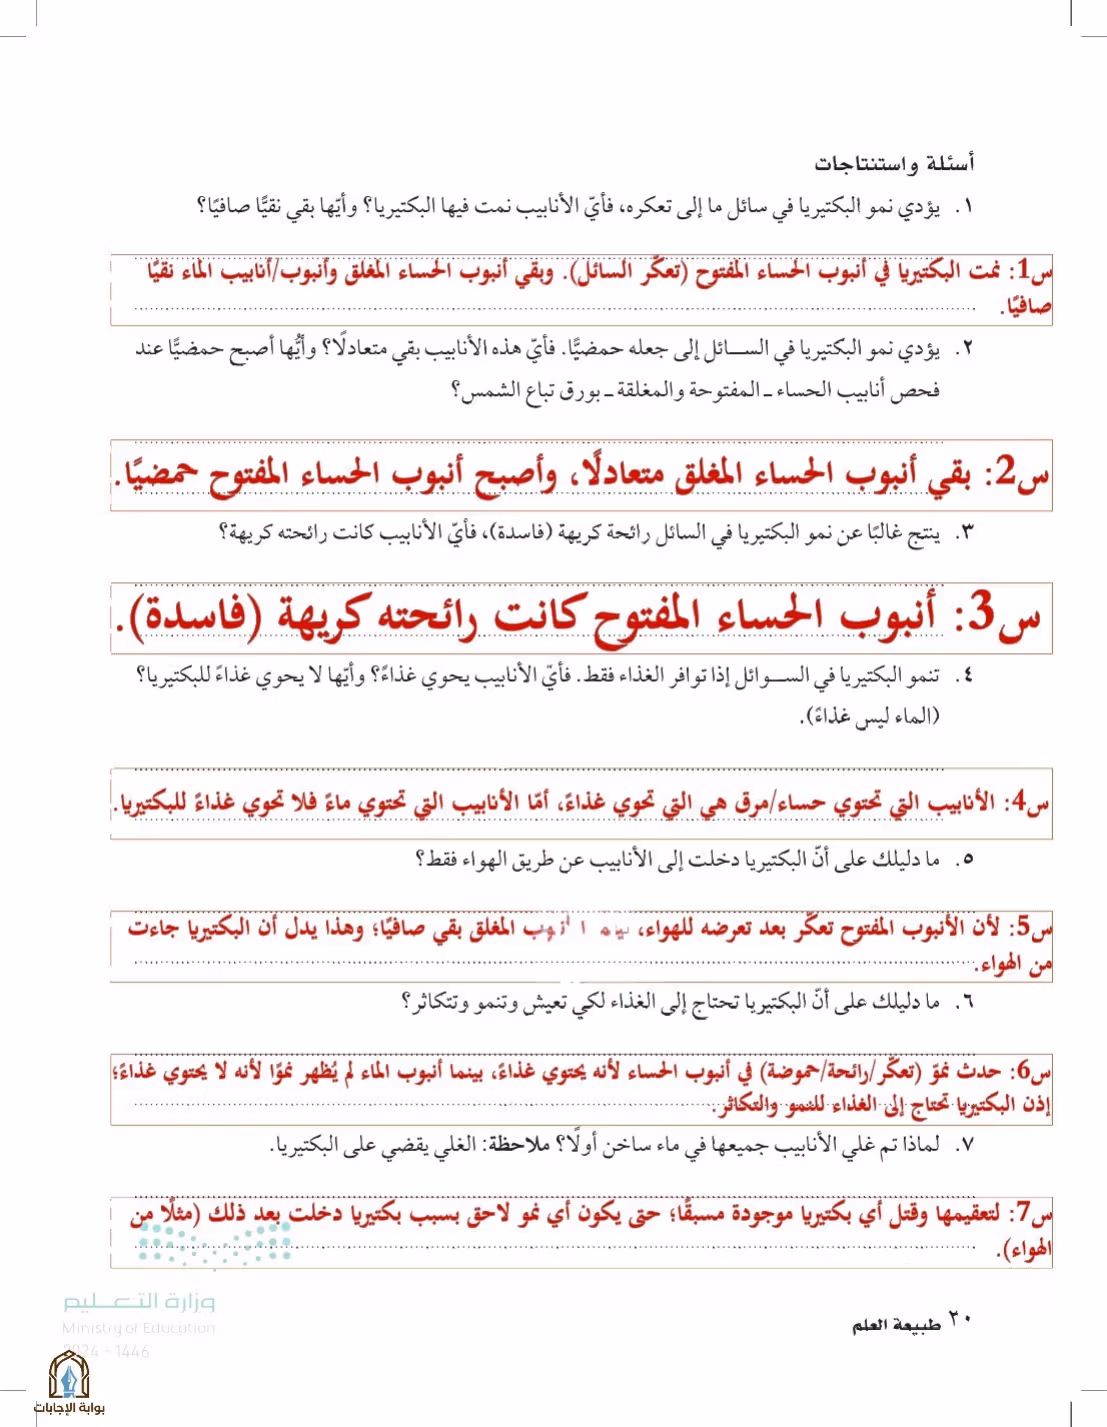 أسئلة واستنتاجات
١. يؤدي نمو البكتيريا في سائل ما إلى تعكره، فأيّ الأنابيب نمت فيها البكتيريا؟ وأيّها بقي نقيًّا صافيًا؟
س1: نمت البكتيريا في أنبوب الحساء المفتوح (تعكّر السائل). وبقي أنبوب الحساء المغلق وأنبوب/أنابيب الماء نقيًا
صافيًا.
٢. يؤدي نمو البكتيريا في السائل إلى جعله حمضيًّا. فأيّ هذه الأنابيب بقي متعادلًا؟ وأيُّها أصبح حمضيًّا عند
فحص أنابيب الحساء ـ المفتوحة والمغلقة ـ بورق تباع الشمس؟
س2: بقي أنبوب الحساء المغلق متعادلًا، وأصبح أنبوب الحساء المفتوح حمضيًا.
٣. ينتج غالبًا عن نمو البكتيريا في السائل رائحة كريهة (فاسدة)، فأيّ الأنابيب كانت رائحته كريهة؟
س3: أنبوب الحساء المفتوح كانت رائحته كريهة (فاسدة).
٤. تنمو البكتيريا في السوائل إذا توافر الغذاء فقط. فأيّ الأنابيب يحوي غذاءً؟ وأيّها لا يحوي غذاءً للبكتيريا؟
(الماء ليس غذاءً).
س4: الأنابيب التي تحتوي حساء/مرق هي التي تحوي غذاءً، أمّا الأنابيب التي تحتوي ماءً فلا تحوي غذاءً للبكتيريا.
٥. ما دليلك على أنّ البكتيريا دخلت إلى الأنابيب عن طريق الهواء فقط؟
س5: لأن الأنبوب المفتوح تعكّر بعد تعرضه للهواء، المغلق بقي صافيًا؛ وهذا يدل أن البكتيريا جاءت
من الهواء.
٦. ما دليلك على أنّ البكتيريا تحتاج إلى الغذاء لكي تعيش وتنمو وتتكاثر؟
س6: حدث نموّ (تعكّر/رائحة/حموضة) في أنبوب الحساء لأنه يحتوي غذاءً، بينما أنبوب الماء لم يُظهر نموًا لأنه لا يحتوي غذاءً؛
إذن البكتيريا تحتاج إلى الغذاء للنمو والتكاثر.
٧. لماذا تم غلي الأنابيب جميعها في ماء ساخن أولًا؟ ملاحظة: الغلي يقضي على البكتيريا.
س7: لتعقيمها وقتل أي بكتيريا موجودة مسبقًا؛ حتى يكون أي نمو لاحق بسبب بكتيريا دخلت بعد ذلك (مثلًا من
الهواء).
وزارة التعليم
Ministry of Education
2024 - 1446
٢٠ طبيعة العلم
بوابة الإجابات